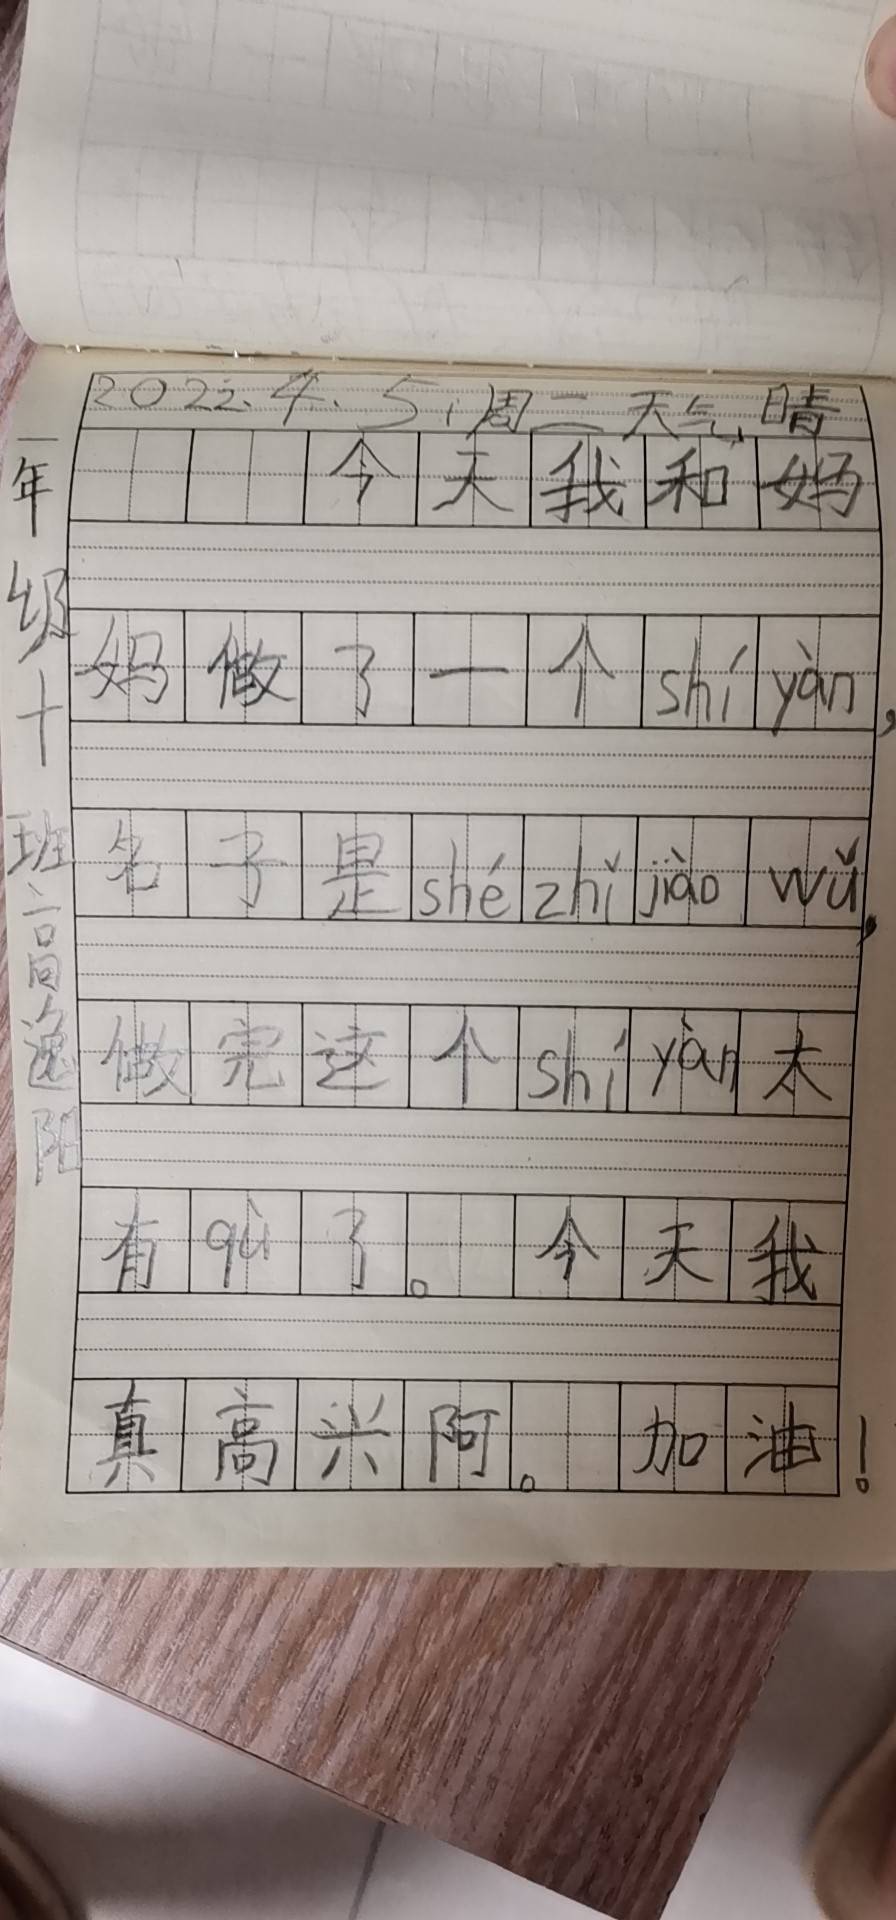 2022.4.5.周二天气晴
今天我和妈
妈做了一个shíyàn,
名子是shézhǐjiàowǔ,
做完这个shíyàn太
有qù了。今天我
真高兴阿。加油!
一年级十班高逸阳